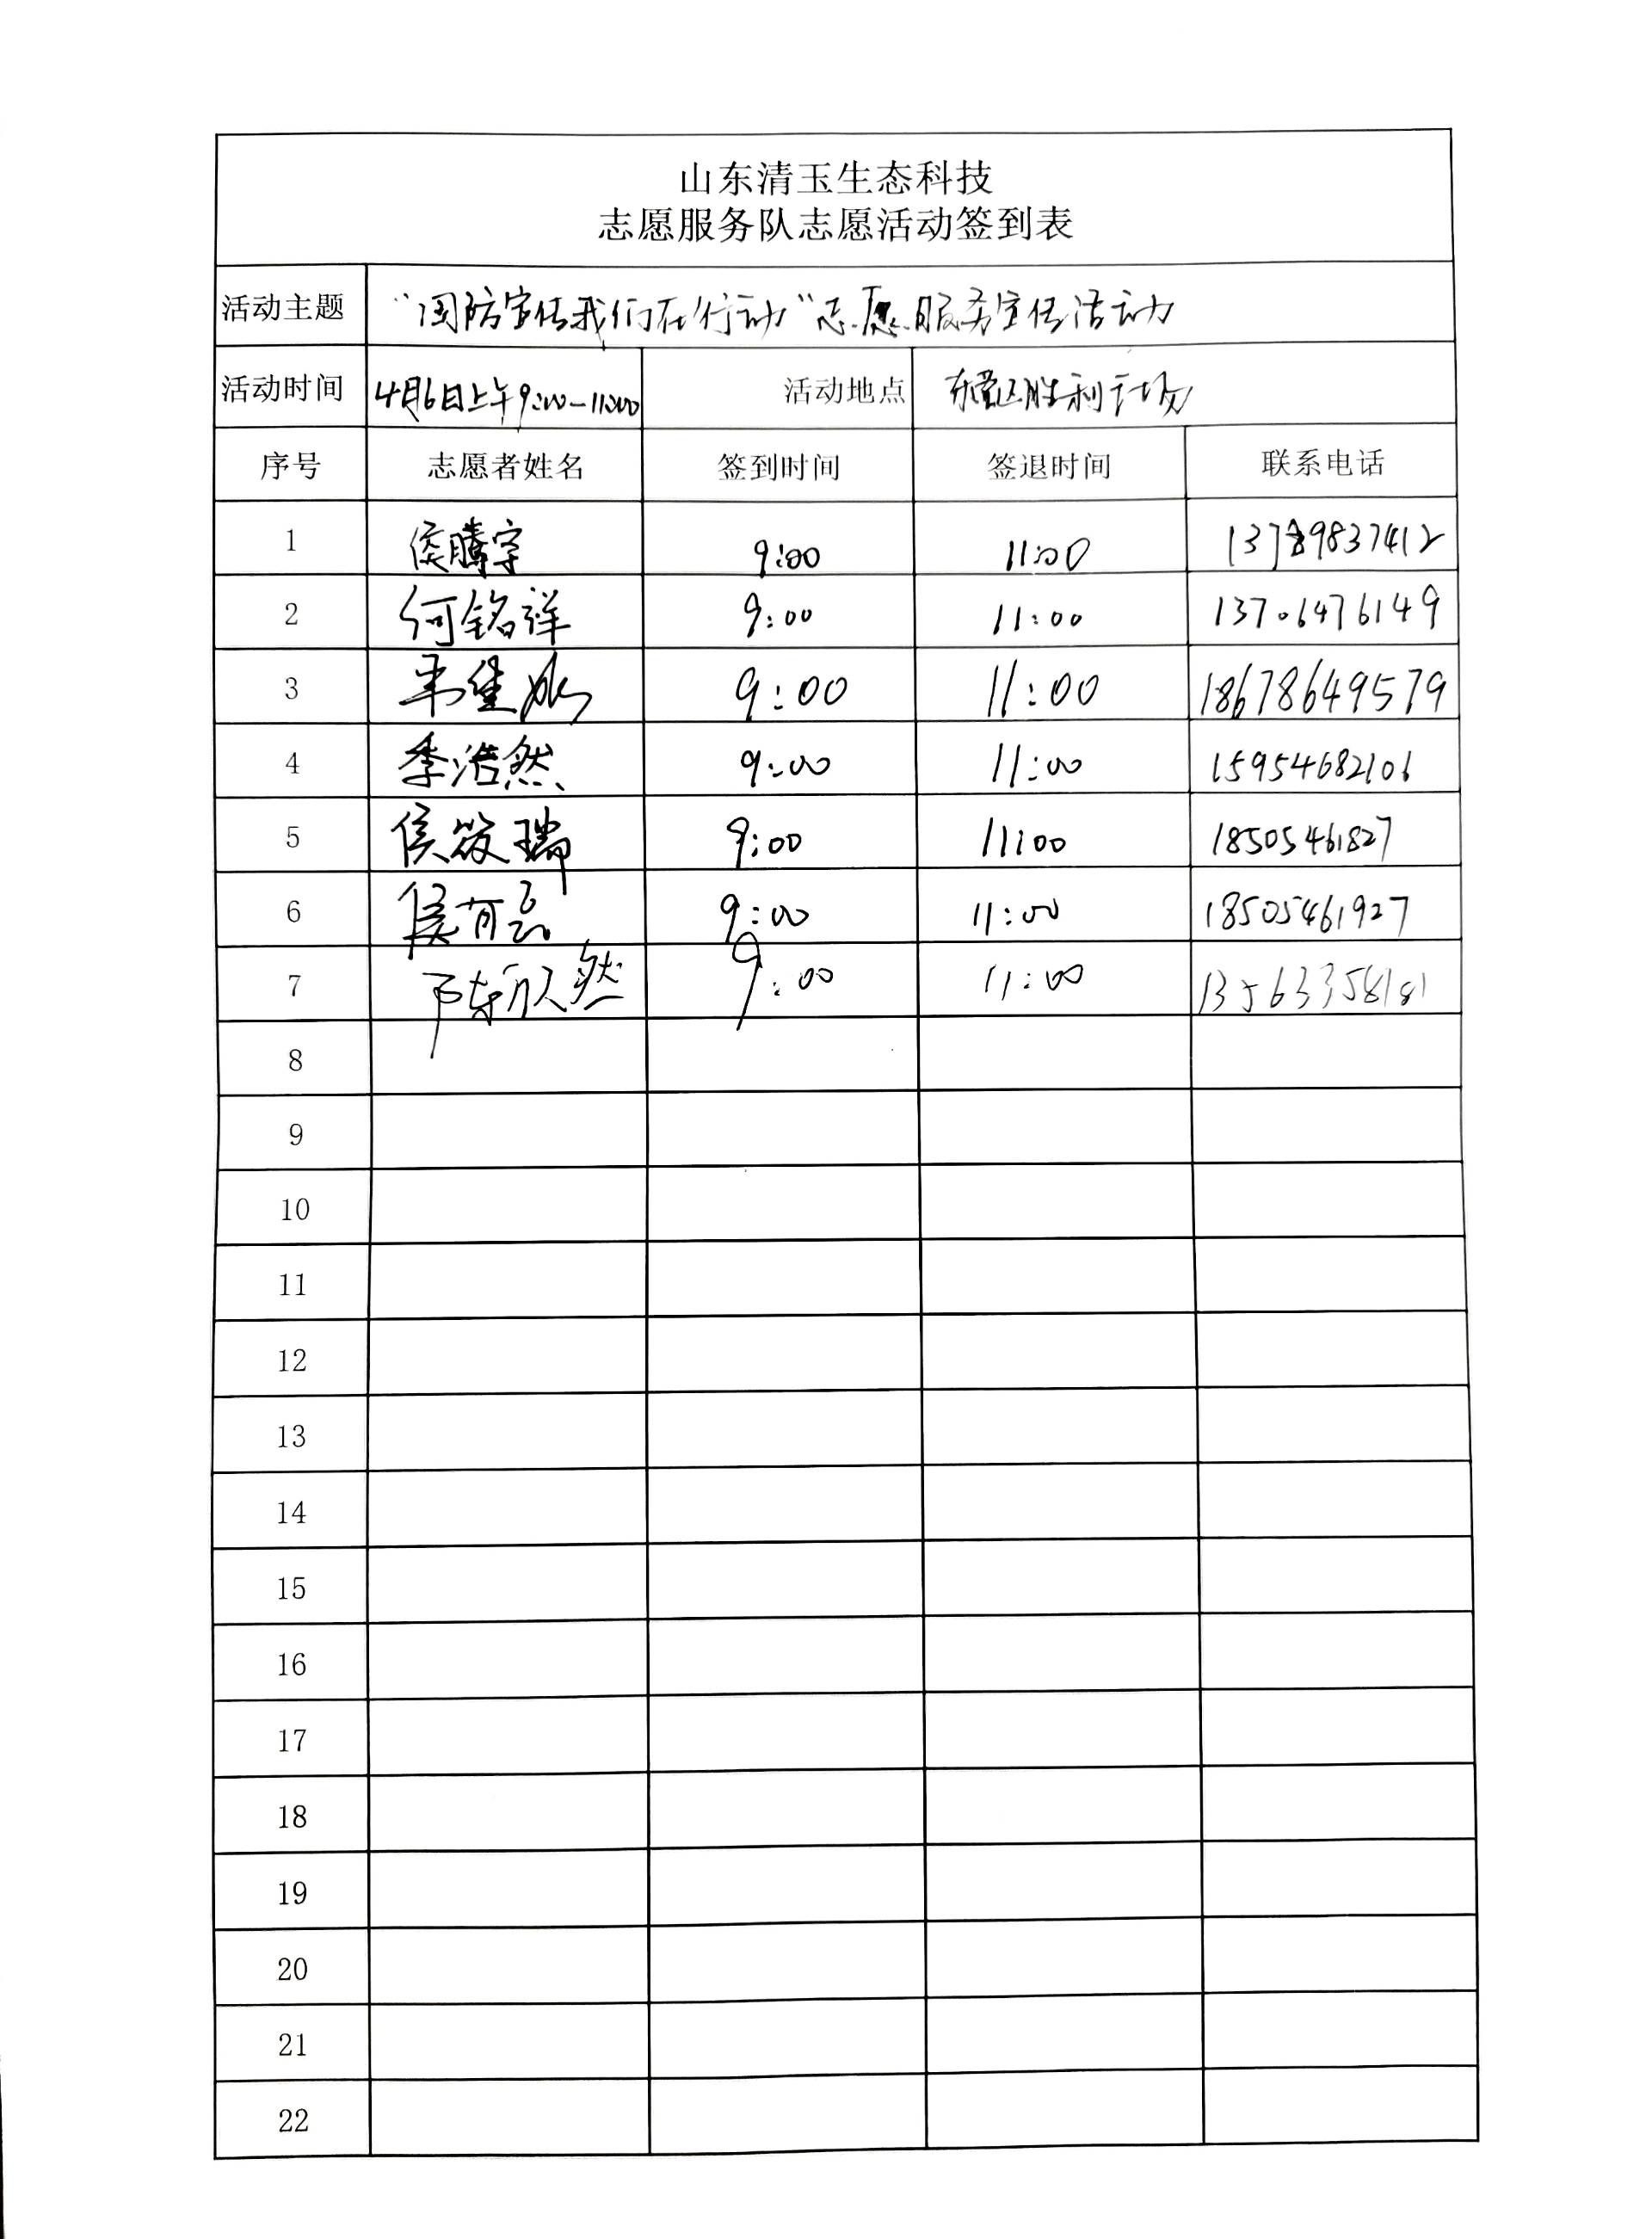 山东清玉生态科技
志愿服务队志愿活动签到表
活动主题 "国防宣传我们在行动"志愿服务宣传活动
活动时间 4月6日上午9:00-11:00 活动地点 东营区胜利广场
序号 志愿者姓名 签到时间 签退时间 联系电话
1 侯腾宇 9:00 11:00
2 何铭祥 9:00 11:00 13706476149
3 9:00 11:00 18678649579
4 季浩然 9:00 11:00 15954682106
5 侯筱瑞 9:00 11:00 18505461827
6 侯 磊 9:00 11:00 18505461927
7 陈欣然 9:00 11:00 13563358181
8
9
10
11
12
13
14
15
16
17
18
19
20
21
22